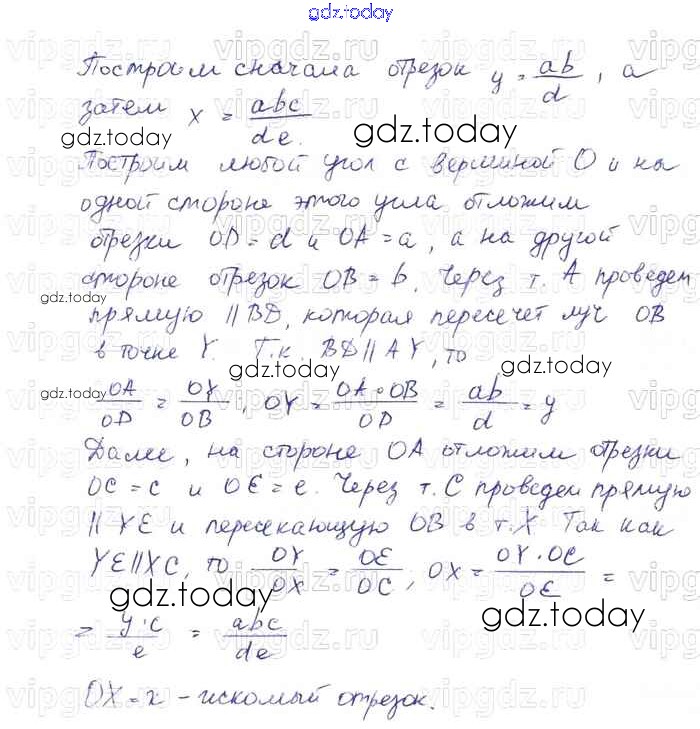 gdz.today
Построим сначала отрезок y = ab/d, а
затем x = abc/de.
gdz.today gdz.today
Построим любой угол с вершиной O и на
одной стороне этого угла отложим
отрезки OD = d и OA = a, а на другой
стороне отрезок OB = b. Через т. A проведем
gdz.today
прямую || BD, которая пересечет луч OB
в точке Y. Т.к. BD || AY, то
gdz.today gdz.today
gdz.today
OA/OD = OY/OB, OY = OA·OB/OD = ab/d = y
Далее, на стороне OA отложим отрезки
OC = c и OE = e. Через т. C проведем прямую
|| YE и пересекающую OB в т. X. Так как
YE || XC, то OY/OX = OE/OC, OX = OY·OC/OE =
gdz.today gdz.today
= y·c/e = abc/de
OX = x - искомый отрезок.